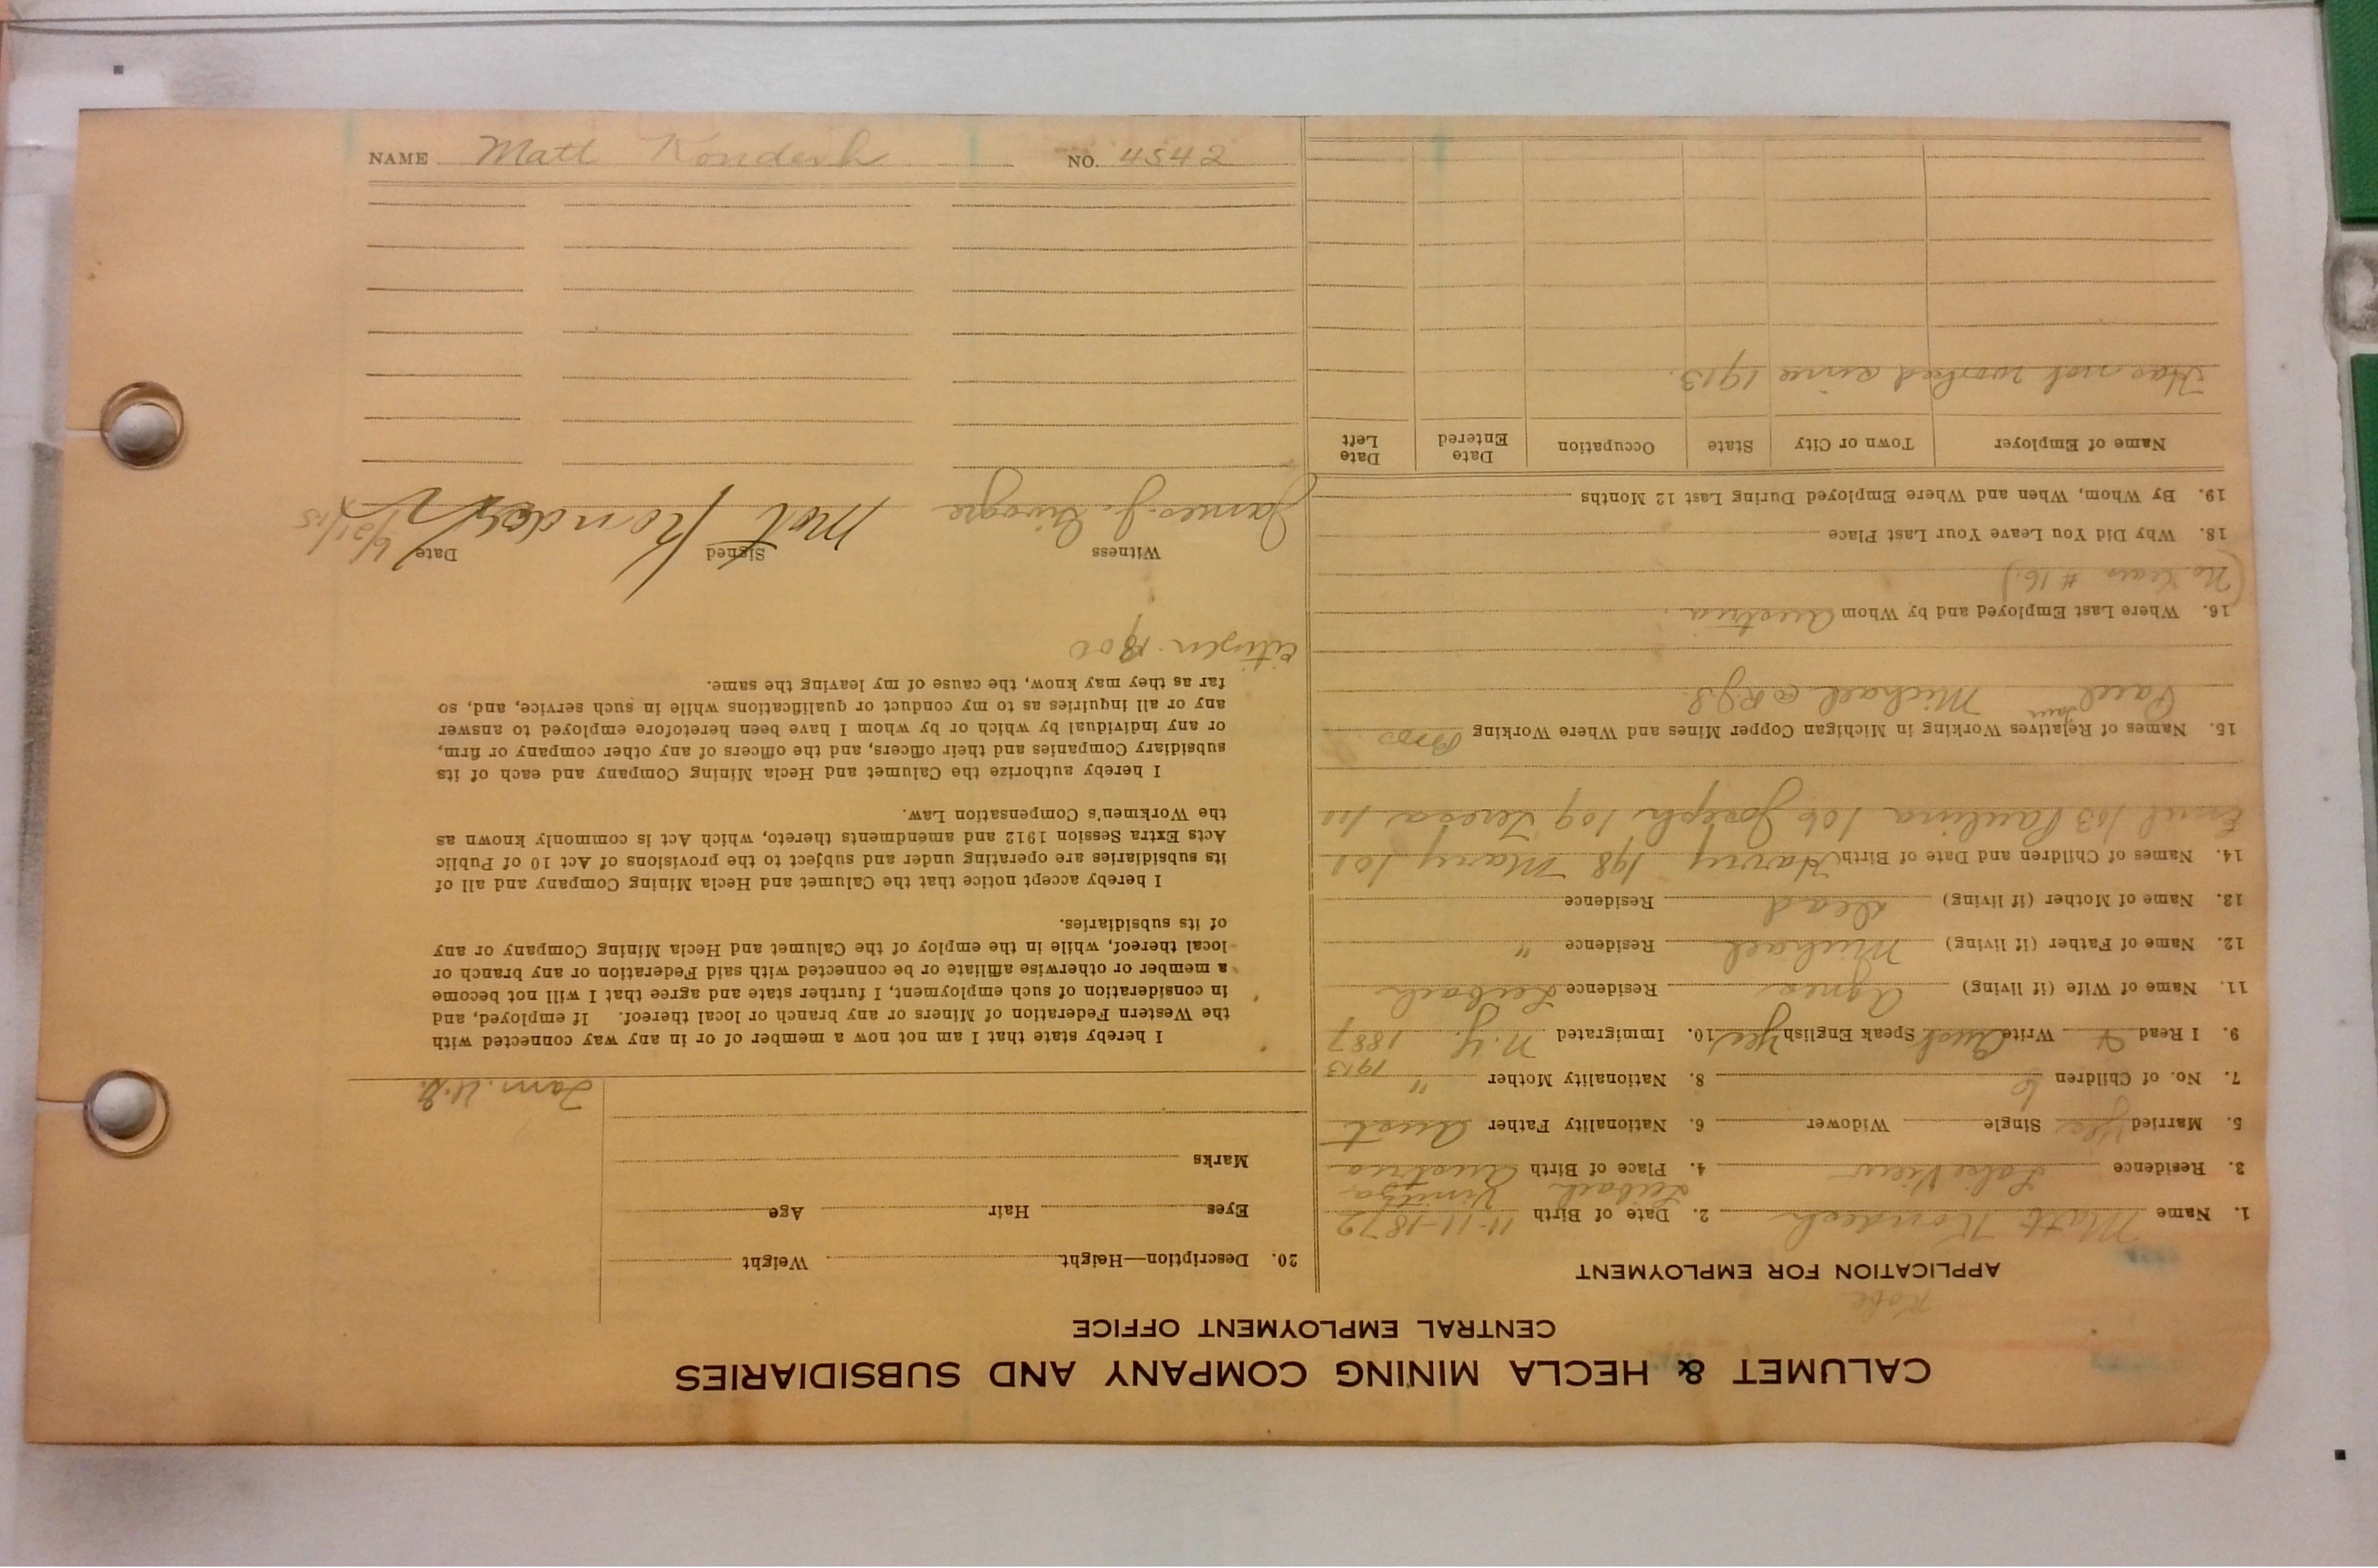 CALUMET & HECLA MINING COMPANY AND SUBSIDIARIES
CENTRAL EMPLOYMENT OFFICE
APPLICATION FOR EMPLOYMENT
1. Name Matt Kondesh 2. Date of Birth 11-11-1872
Leibach
3. Residence Lake View 4. Place of Birth Austria
5. Married Yes Single Widower 6. Nationality Father Aust
7. No. of Children 6 8. Nationality Mother "
1913
9. I Read & Write Aust Speak English Yes 10. Immigrated N.Y. 1887
11. Name of Wife (if living) Agnes Residence Leibach
12. Name of Father (if living) Michael Residence "
13. Name of Mother (if living) Dead Residence
14. Names of Children and Date of Birth Harry 198 Mary 101
103 Paulina 106 Joseph 109 Teresa 1
15. Names of Relatives Working in Michigan Copper Mines and Where Working Bros
Paul Michael @
16. Where Last Employed and by Whom Austria
(No # 16.)
18. Why Did You Leave Your Last Place
19. By Whom, When and Where Employed During Last 12 Months
Name of Employer Town or City State Occupation Date Entered Date Left
Has not worked since 1913.
20. Description—Height Weight
Eyes Hair Age
Marks
I hereby state that I am not now a member of or in any way connected with
the Western Federation of Miners or any branch or local thereof. If employed, and
in consideration of such employment, I further state and agree that I will not become
a member or otherwise affiliate or be connected with said Federation or any branch or
local thereof, while in the employ of the Calumet and Hecla Mining Company or any
of its subsidiaries.
I hereby accept notice that the Calumet and Hecla Mining Company and all of
its subsidiaries are operating under and subject to the provisions of Act 10 of Public
Acts Extra Session 1912 and amendments thereto, which Act is commonly known as
the Workmen's Compensation Law.
I hereby authorize the Calumet and Hecla Mining Company and each of its
subsidiary Companies and their officers, and the officers of any other company or firm,
or any individual by which or by whom I have been heretofore employed to answer
any or all inquiries as to my conduct or qualifications while in such service, and, so
far as they may know, the cause of my leaving the same.
Citizen 1900
Witness Signed Date
James J. Mat Kondesh 6/21/15
NAME Matt Kondesh NO. 4542